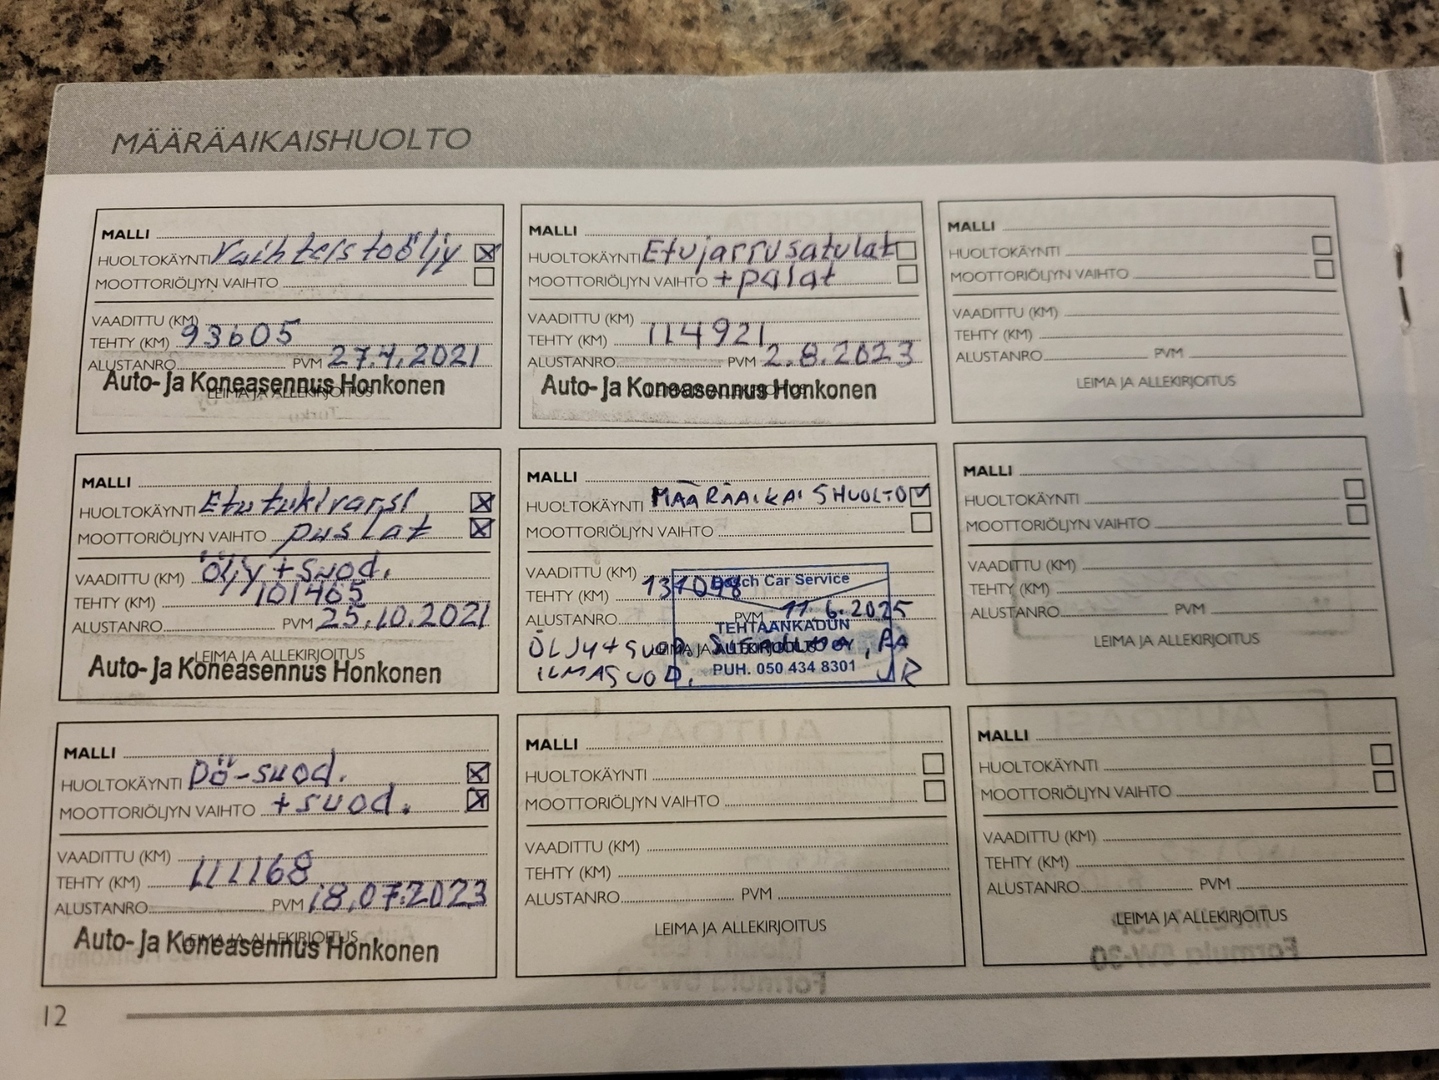 MÄÄRÄAIKAISHUOLTO
MALLI
HUOLTOKÄYNTI Vaihteistoöljy
MOOTTORIÖLJYN VAIHTO
VAADITTU (KM)
TEHTY (KM) 93605
ALUSTANRO PVM 27.4.2021
LEIMA JA ALLEKIRJOITUS
Auto- ja Koneasennus Honkonen
MALLI
HUOLTOKÄYNTI Etutukivarsi
MOOTTORIÖLJYN VAIHTO puslat
VAADITTU (KM) öljy+suod.
TEHTY (KM) 101465
ALUSTANRO PVM 25.10.2021
LEIMA JA ALLEKIRJOITUS
Auto- ja Koneasennus Honkonen
MALLI
HUOLTOKÄYNTI Pö-suod.
MOOTTORIÖLJYN VAIHTO +suod.
VAADITTU (KM)
TEHTY (KM) 111168
ALUSTANRO PVM 18.07.2023
LEIMA JA ALLEKIRJOITUS
Auto- ja Koneasennus Honkonen
MALLI
HUOLTOKÄYNTI Etujarrusatulat
MOOTTORIÖLJYN VAIHTO +palat
VAADITTU (KM)
TEHTY (KM) 114921
ALUSTANRO PVM 2.8.2023
LEIMA JA ALLEKIRJOITUS
Auto- ja Koneasennus Honkonen
MALLI
HUOLTOKÄYNTI MÄÄRÄAIKAISHUOLTO
MOOTTORIÖLJYN VAIHTO
VAADITTU (KM)
TEHTY (KM)
Bosch Car Service
ALUSTANRO PVM 11.6.2025
TEHTAANKADUN
ÖLJY+SUOD,
LEIMA JA ALLEKIRJOITUS
ILMASUOD,
PUH. 050 434 8301
MALLI
HUOLTOKÄYNTI
MOOTTORIÖLJYN VAIHTO
VAADITTU (KM)
TEHTY (KM)
ALUSTANRO PVM
LEIMA JA ALLEKIRJOITUS
MALLI
HUOLTOKÄYNTI
MOOTTORIÖLJYN VAIHTO
VAADITTU (KM)
TEHTY (KM)
ALUSTANRO PVM
LEIMA JA ALLEKIRJOITUS
MALLI
HUOLTOKÄYNTI
MOOTTORIÖLJYN VAIHTO
VAADITTU (KM)
TEHTY (KM)
ALUSTANRO PVM
LEIMA JA ALLEKIRJOITUS
MALLI
HUOLTOKÄYNTI
MOOTTORIÖLJYN VAIHTO
VAADITTU (KM)
TEHTY (KM)
ALUSTANRO PVM
LEIMA JA ALLEKIRJOITUS
12